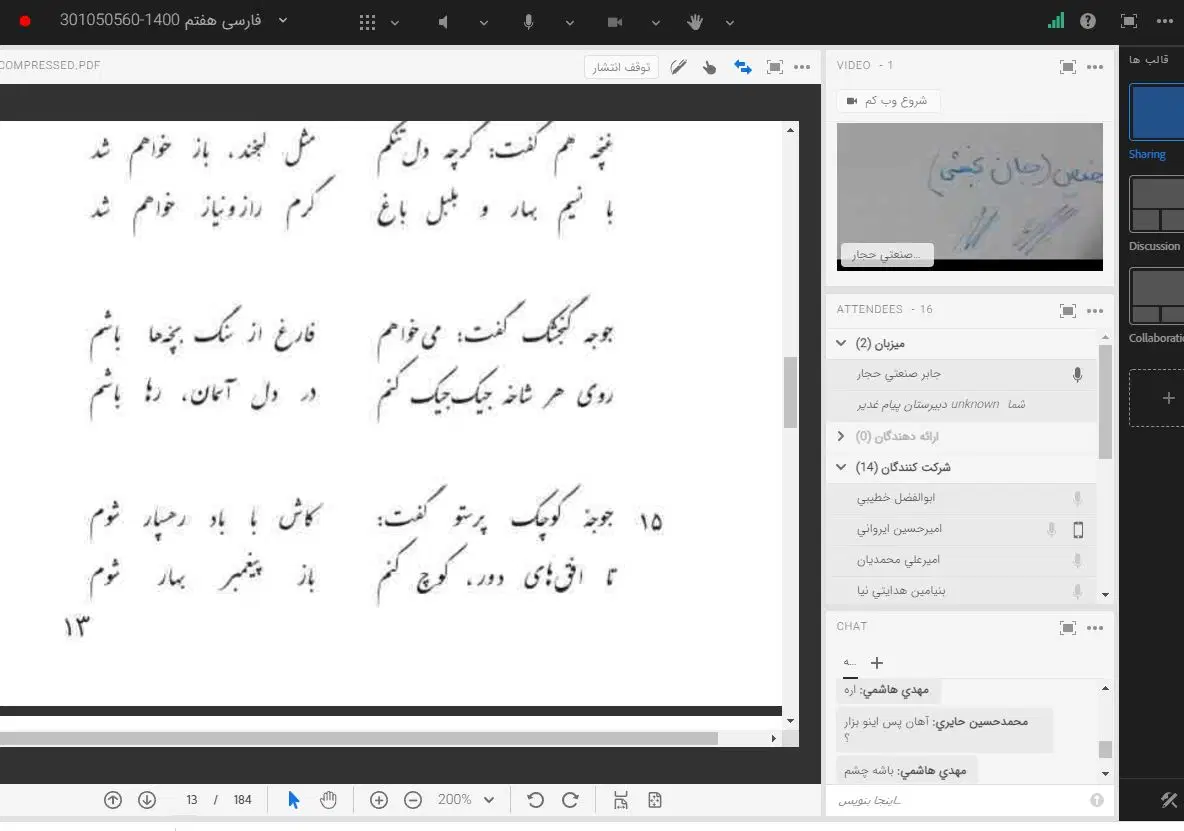 فارسی هفتم 1400-301050560
COMPRESSED.PDF
توقف انتشار
غنچه هم گفت: گرچه دل‌تنگم
مثل لبخند، باز خواهم شد
با نسیم بهار و بلبل باغ
گرم رازونیاز خواهم شد
جوجه گنجشک گفت: می‌خواهم
فارغ از سنگ بچّه‌ها باشم
روی هر شاخه جیک‌جیک کنم
در دل آسمان، رها باشم
۱۵ جوجهٔ کوچک پرستو گفت:
کاش با باد رهسپار شوم
تا افق‌های دور، کوچ کنم
باز پیغمبر بهار شوم
۱۳
13 / 184
200%
VIDEO - 1
شروع وب کم
(جان بخشی)
صنعتي حجار...
ATTENDEES - 16
میزبان (2)
جابر صنعتي حجار
شما unknown دبیرستان پیام غدیر
ارائه دهندگان (0)
شرکت کنندگان (14)
ابوالفضل خطيبي
اميرحسين ايرواني
اميرعلي محمديان
بنيامين هدايتي نيا
CHAT
ه...
مهدي هاشمي: اره
محمدحسين حايري: آهان پس اینو بزار
؟
مهدي هاشمي: باشه چشم
اینجا بنویس...
قالب ها
Sharing
Discussion
Collaborati